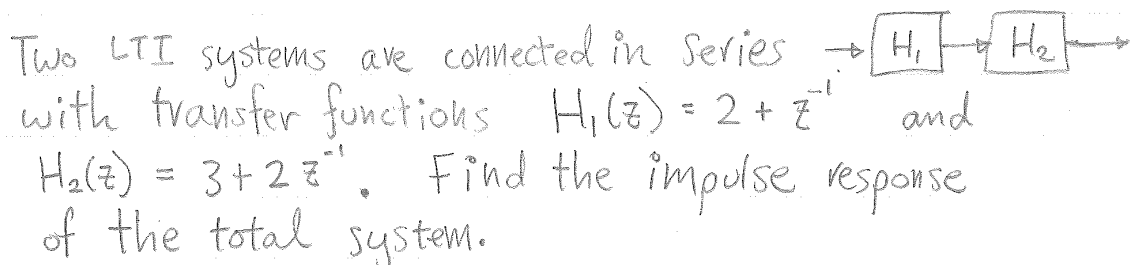 Two LTI systems are connected in series → H₁ → H₂ →
with transfer functions H₁(z) = 2 + z⁻¹ and
H₂(z) = 3 + 2 z⁻¹. Find the impulse response
of the total system.